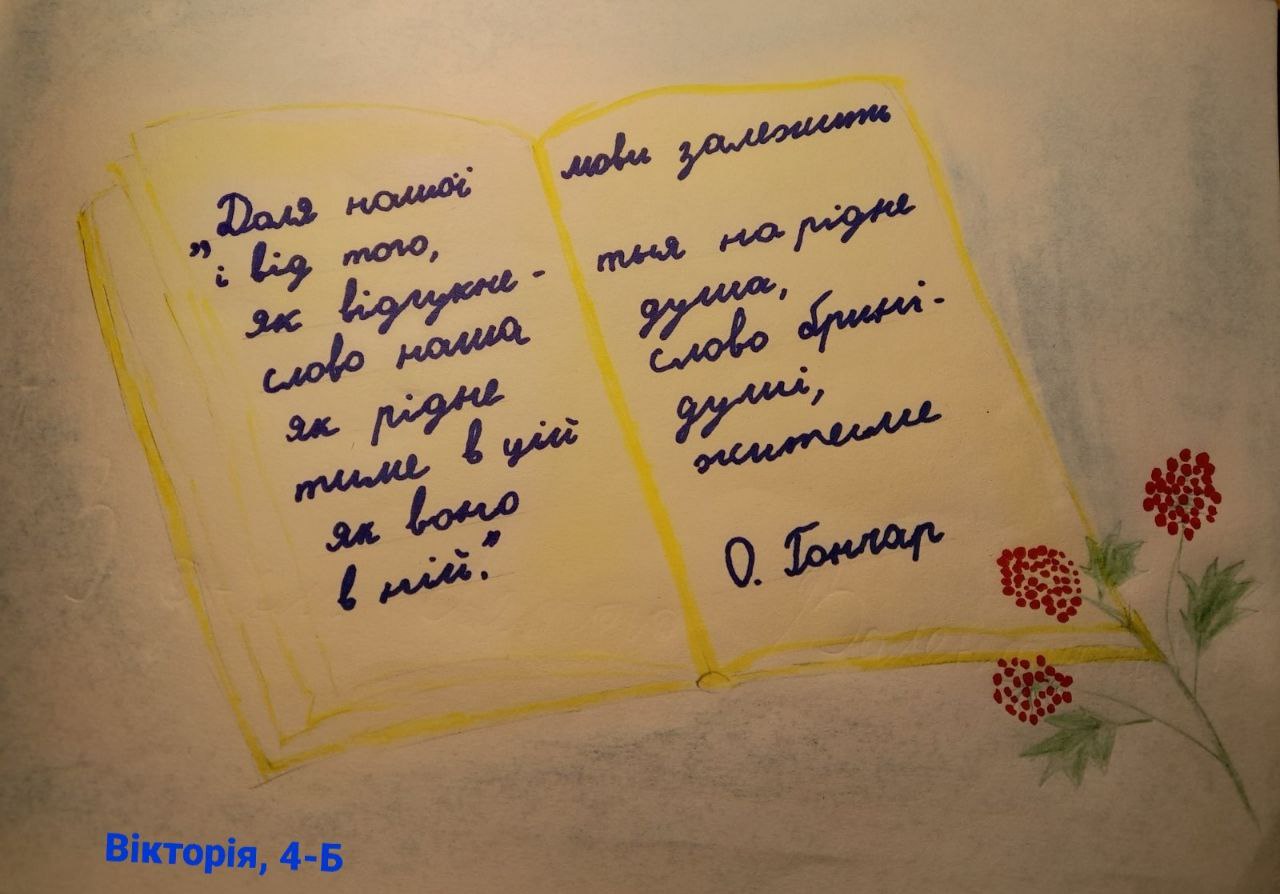 „Доля нашої мови залежить
і від того,
як відгукне- ться на рідне
слово наша душа,
як рідне слово брині-
тиме в цій душі,
як воно житиме
в ній.”
О. Гончар
Вікторія, 4-Б